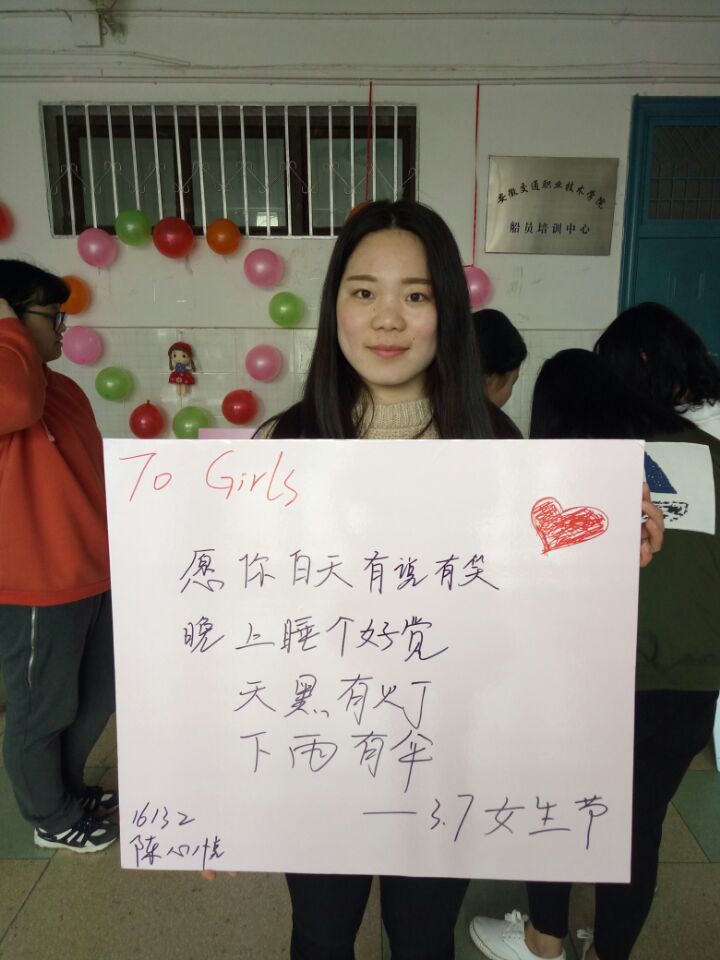 安徽交通职业技术学院
船员培训中心
To Girls
愿你白天有说有笑
晚上睡个好觉
天黑有灯
下雨有伞
——3.7女生节
16132
陈心悦